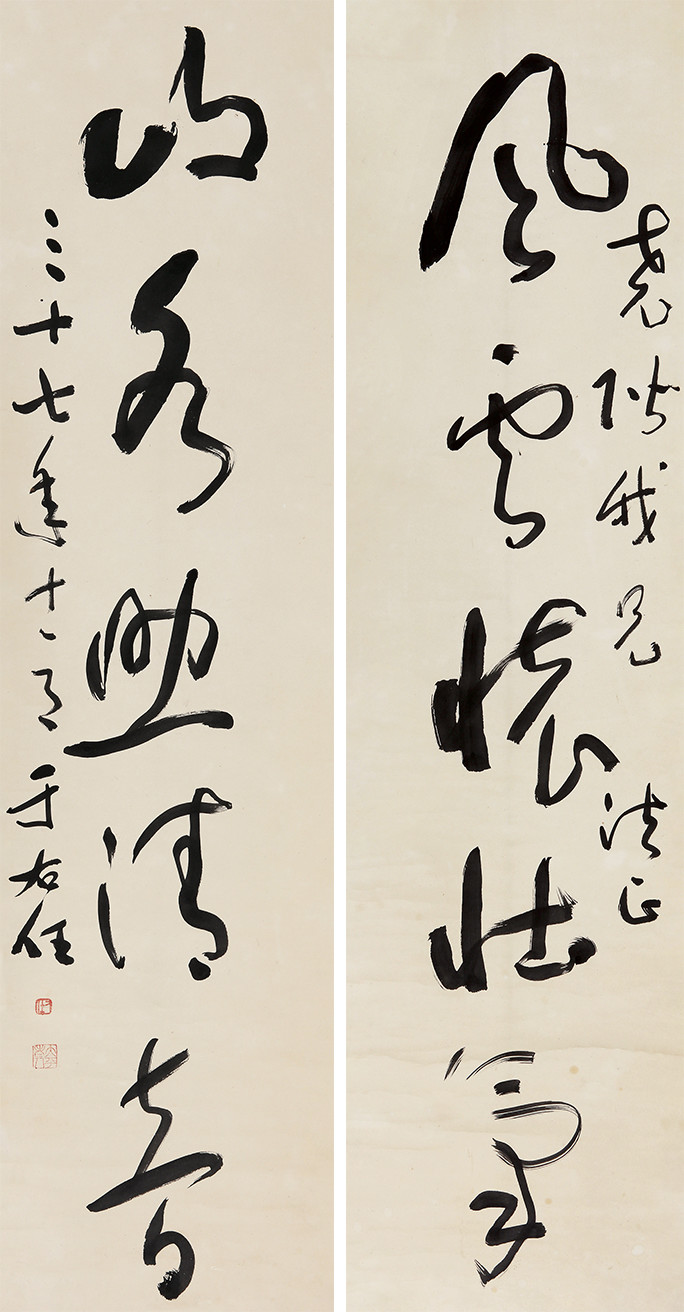 堯階我兄法正
風雲懷壯氣
山水照清音
三十七年十一月于右任